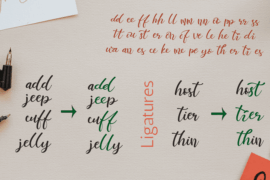 dd ee ff hh ll mm nn pp rr ss
tt st er in if ve le he ti di
wa an es ce ke me pe yo th er ti es
add
jeep
cuff
jelly
add
jeep
cuff
jelly
Ligatures
host
tier
thin
host
tier
thin